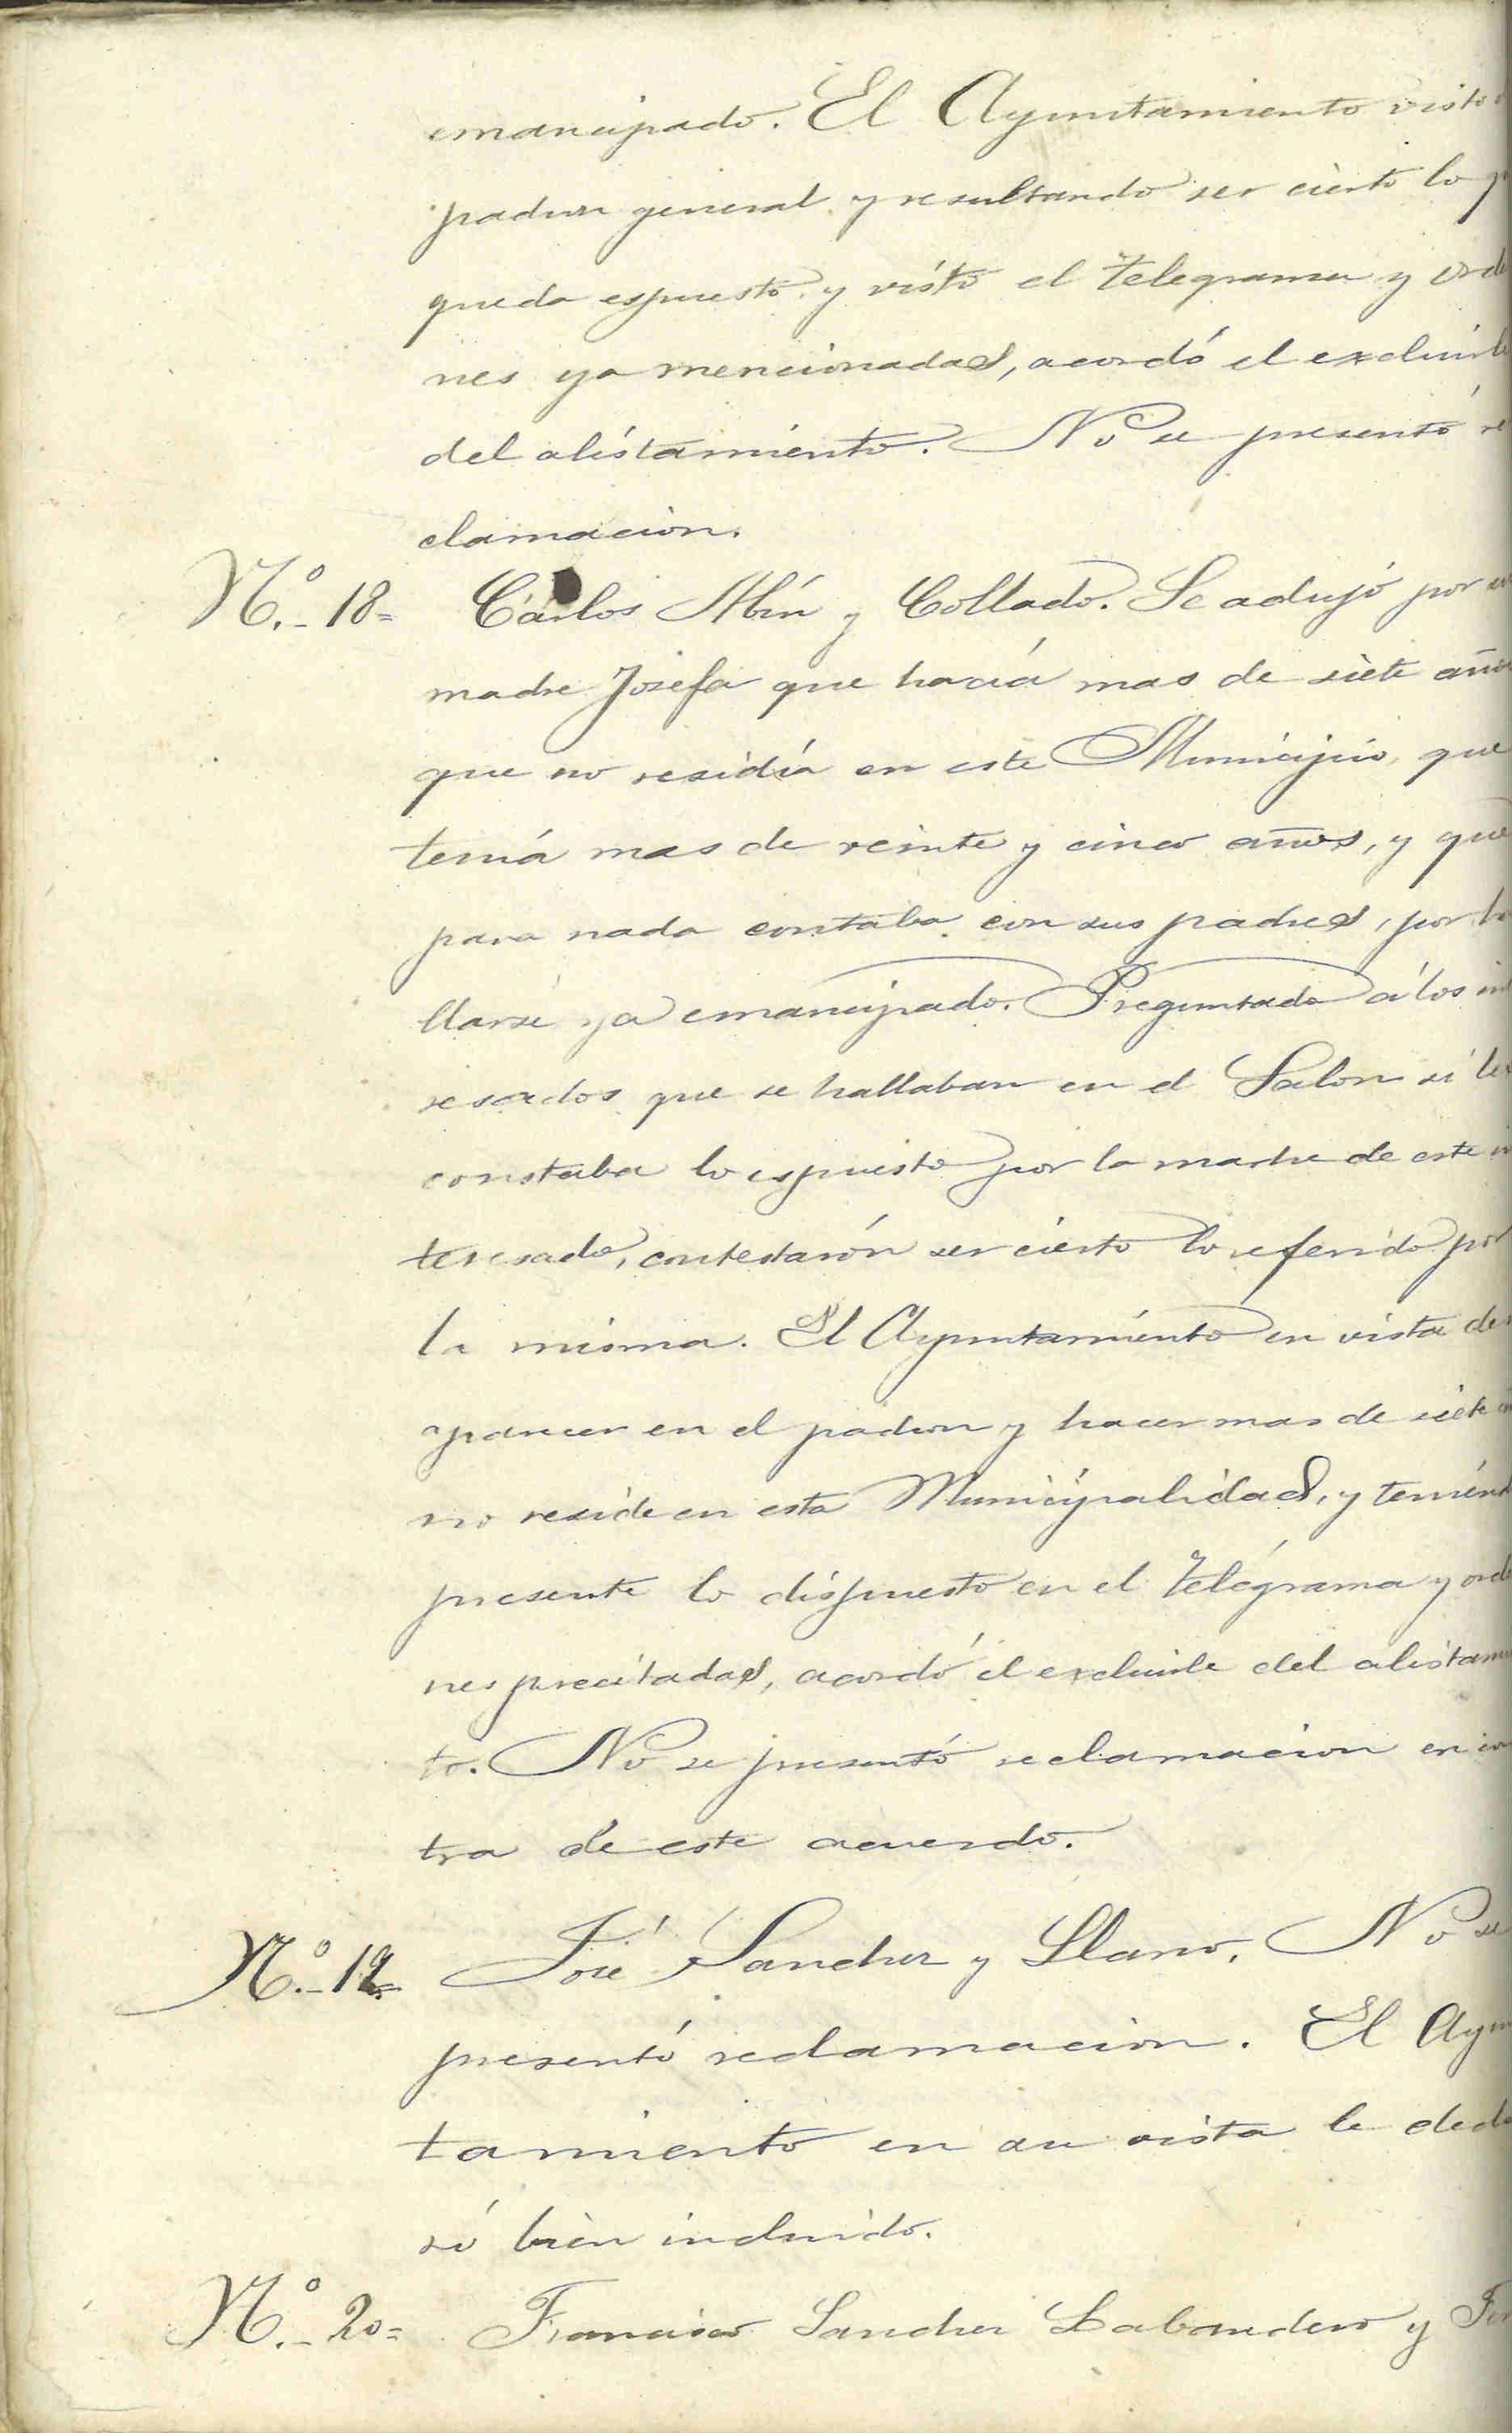 emancipado. El Ayuntamiento visto
padron general y resultando ser cierto lo
queda espuesto y visto el telegrama y orde
nes ya mencionadas, acordó el excluirle
del alistamiento. No se presentó re
clamacion.
N.º 18= Cárlos Abin y Collado. Se adujó por su
madre Josefa que hacía mas de siete años
que no residía en este Municipio, que
tenía mas de veinte y cinco años, y que
para nada contaba con sus padres, por ha
llarse ya emancipado. Preguntado á los inte
resados que se hallaban en el Salon si les
constaba lo espuesto por la madre de este in
teresado, contestarón ser cierto lo referido por
la misma. El Ayuntamiento en vista de
aparecer en el padron y hacer mas de siete
no reside en esta Municipalidad, y teniend
presente lo dispuesto en el telégrama y orde
nes precitadas, acordó el excluirle del alistamien
to. No se presentó reclamacion en con
tra de este acuerdo.
N.º 19= José Sanchez y Llano. No se
presentó reclamacion. El Ayun
tamiento en su vista le decla
ró bien incluido.
N.º 20= Francisco Sanchez Labandero y